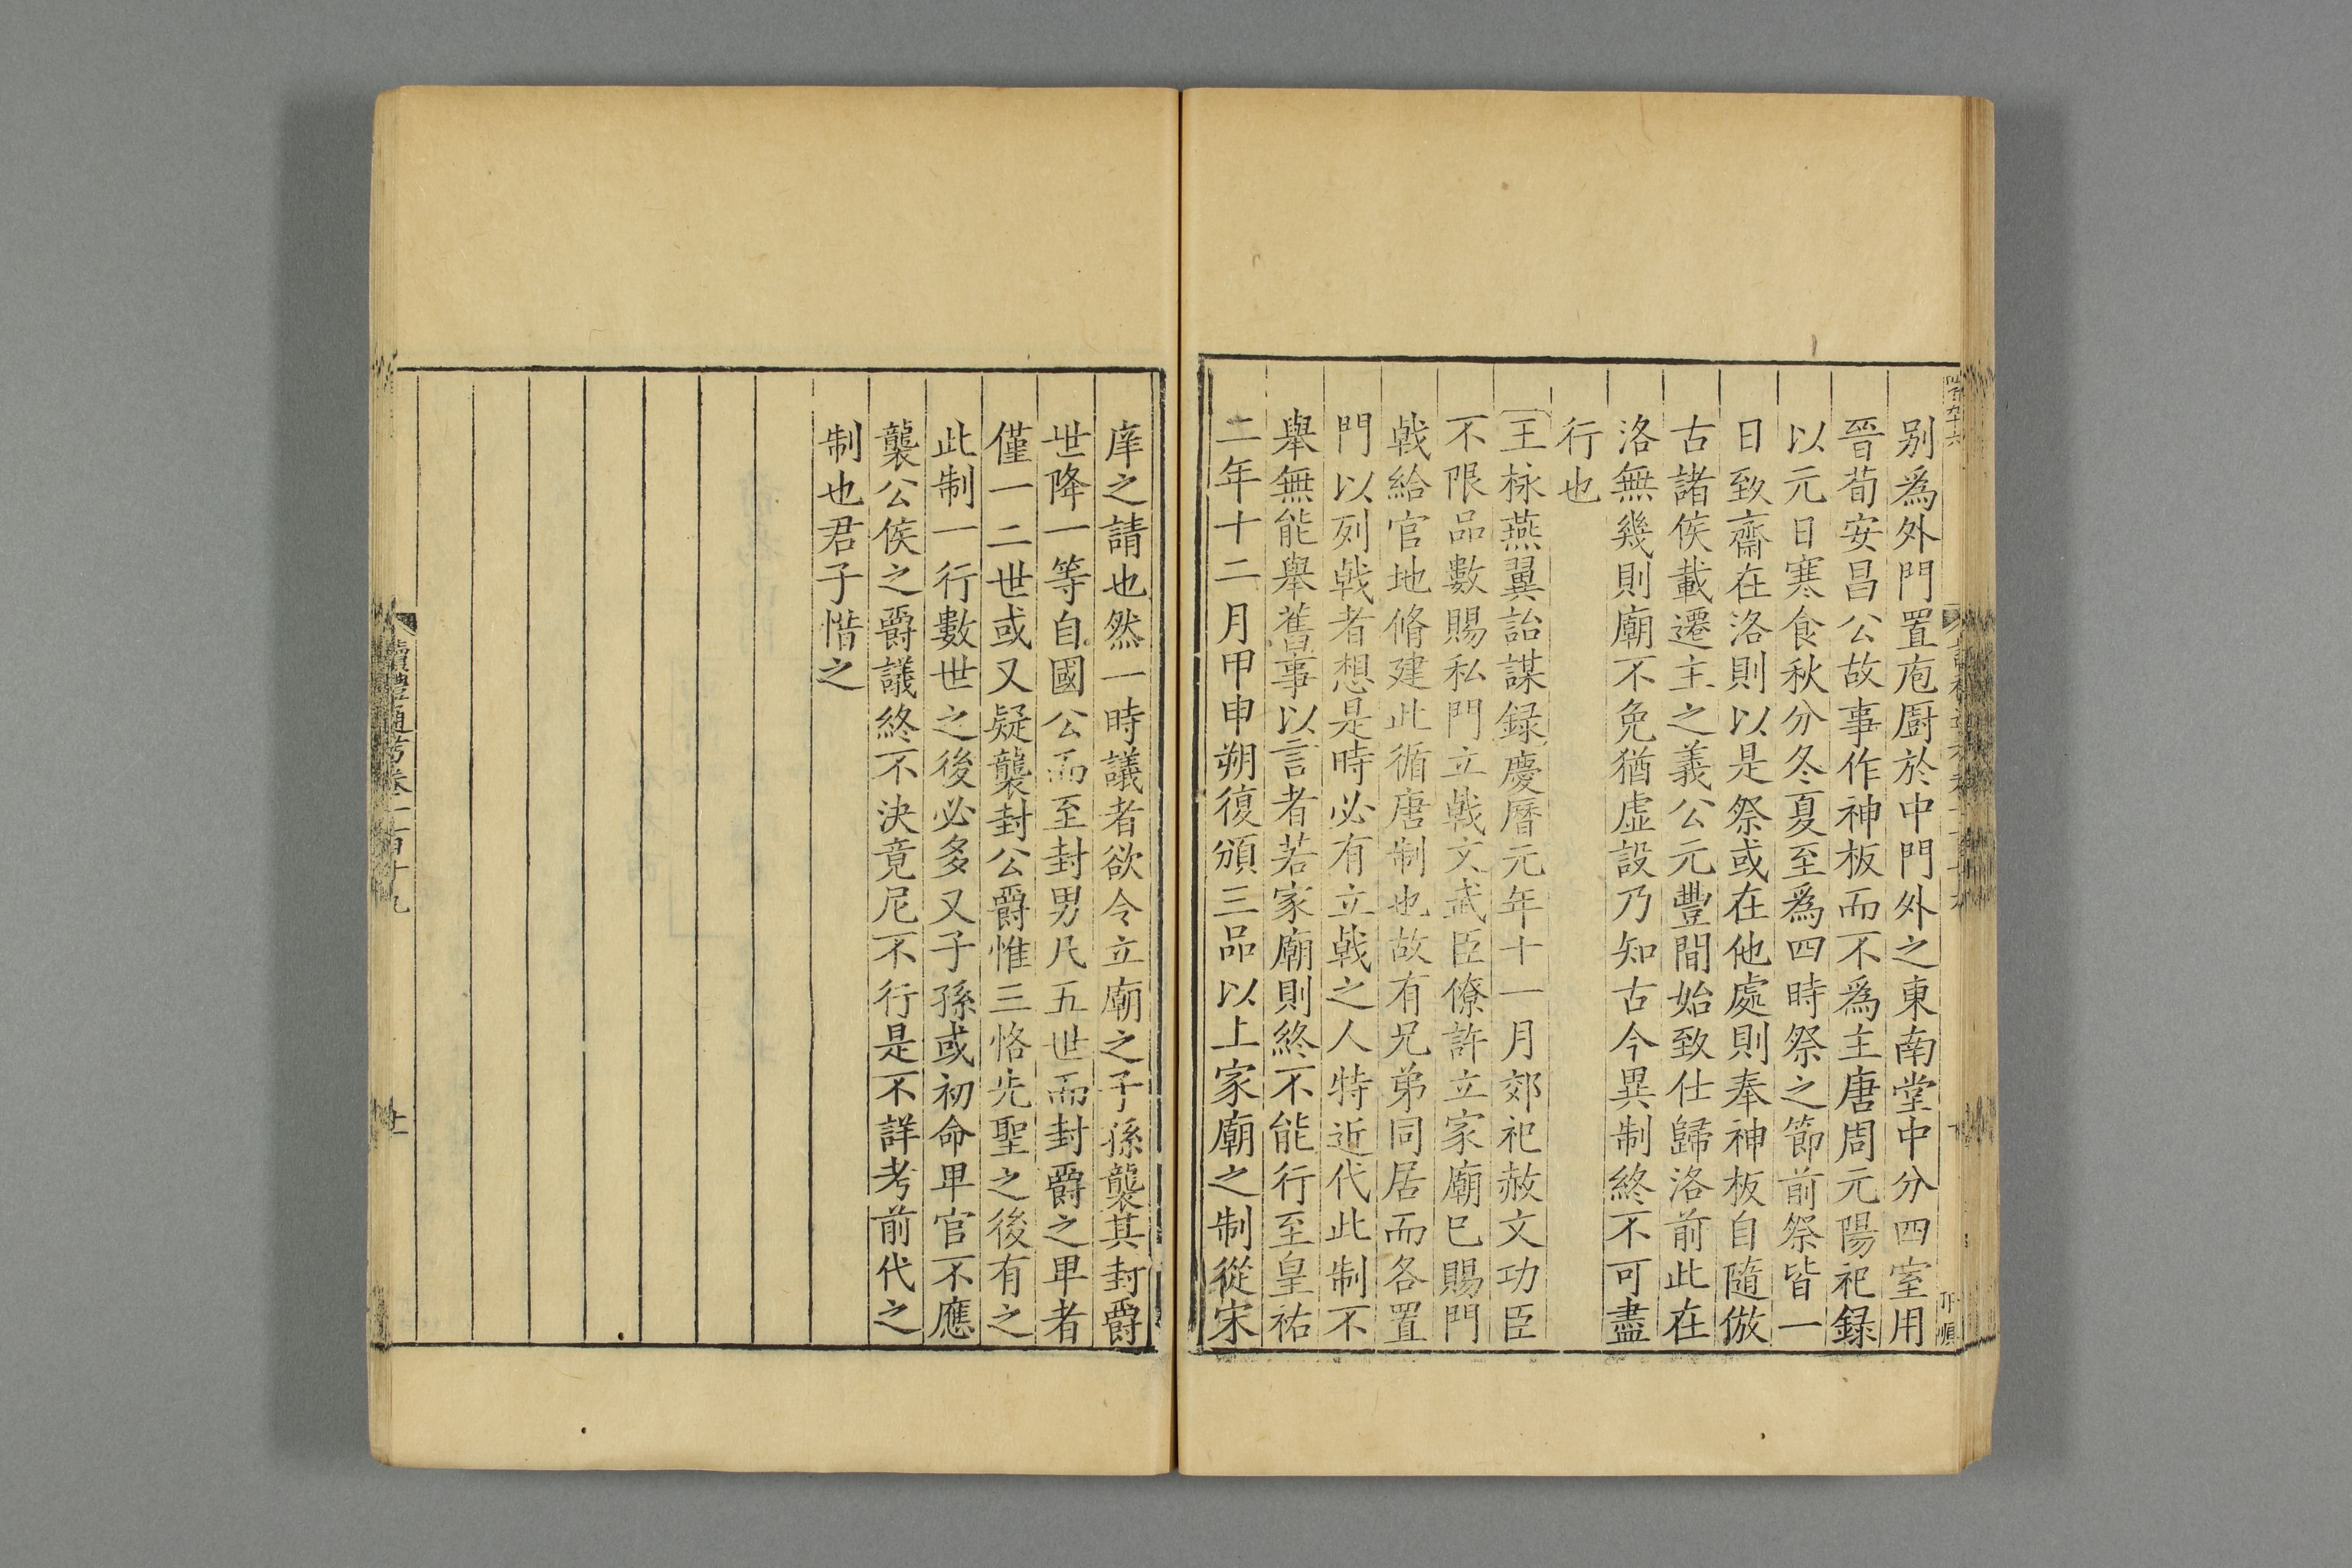 别爲外門置庖厨於中門外之東南堂中分四室用
晉荀安昌公故事作神板而不爲主唐周元陽祀録
以元日寒食秋分冬夏至爲四時祭之節前祭皆一
日致齋在洛則以是祭或在他處則奉神板自隨倣
古諸侯載遷主之義公元豐間始致仕歸洛前此在
洛無幾則廟不免猶虛設乃知古今異制終不可盡
行也
王栐燕翼詒謀録慶曆元年十一月郊祀赦文功臣
不限品數賜私門立戟文武臣僚許立家廟已賜門
戟給官地脩建此循唐制也故有兄弟同居而各置
門以列戟者想是時必有立戟之人特近代此制不
舉無能舉舊事以言者若家廟則終不能行至皇祐
二年十二月甲申朔復頒三品以上家廟之制從宋
庠之請也然一時議者欲令立廟之子孫襲其封爵
世降一等自國公而至封男凡五世而封爵之卑者
僅一二世或又疑襲封公爵惟三恪先聖之後有之
此制一行數世之後必多又子孫或初命卑官不應
襲公侯之爵議終不決竟尼不行是不詳考前代之
制也君子惜之
讀禮通考卷一百十九